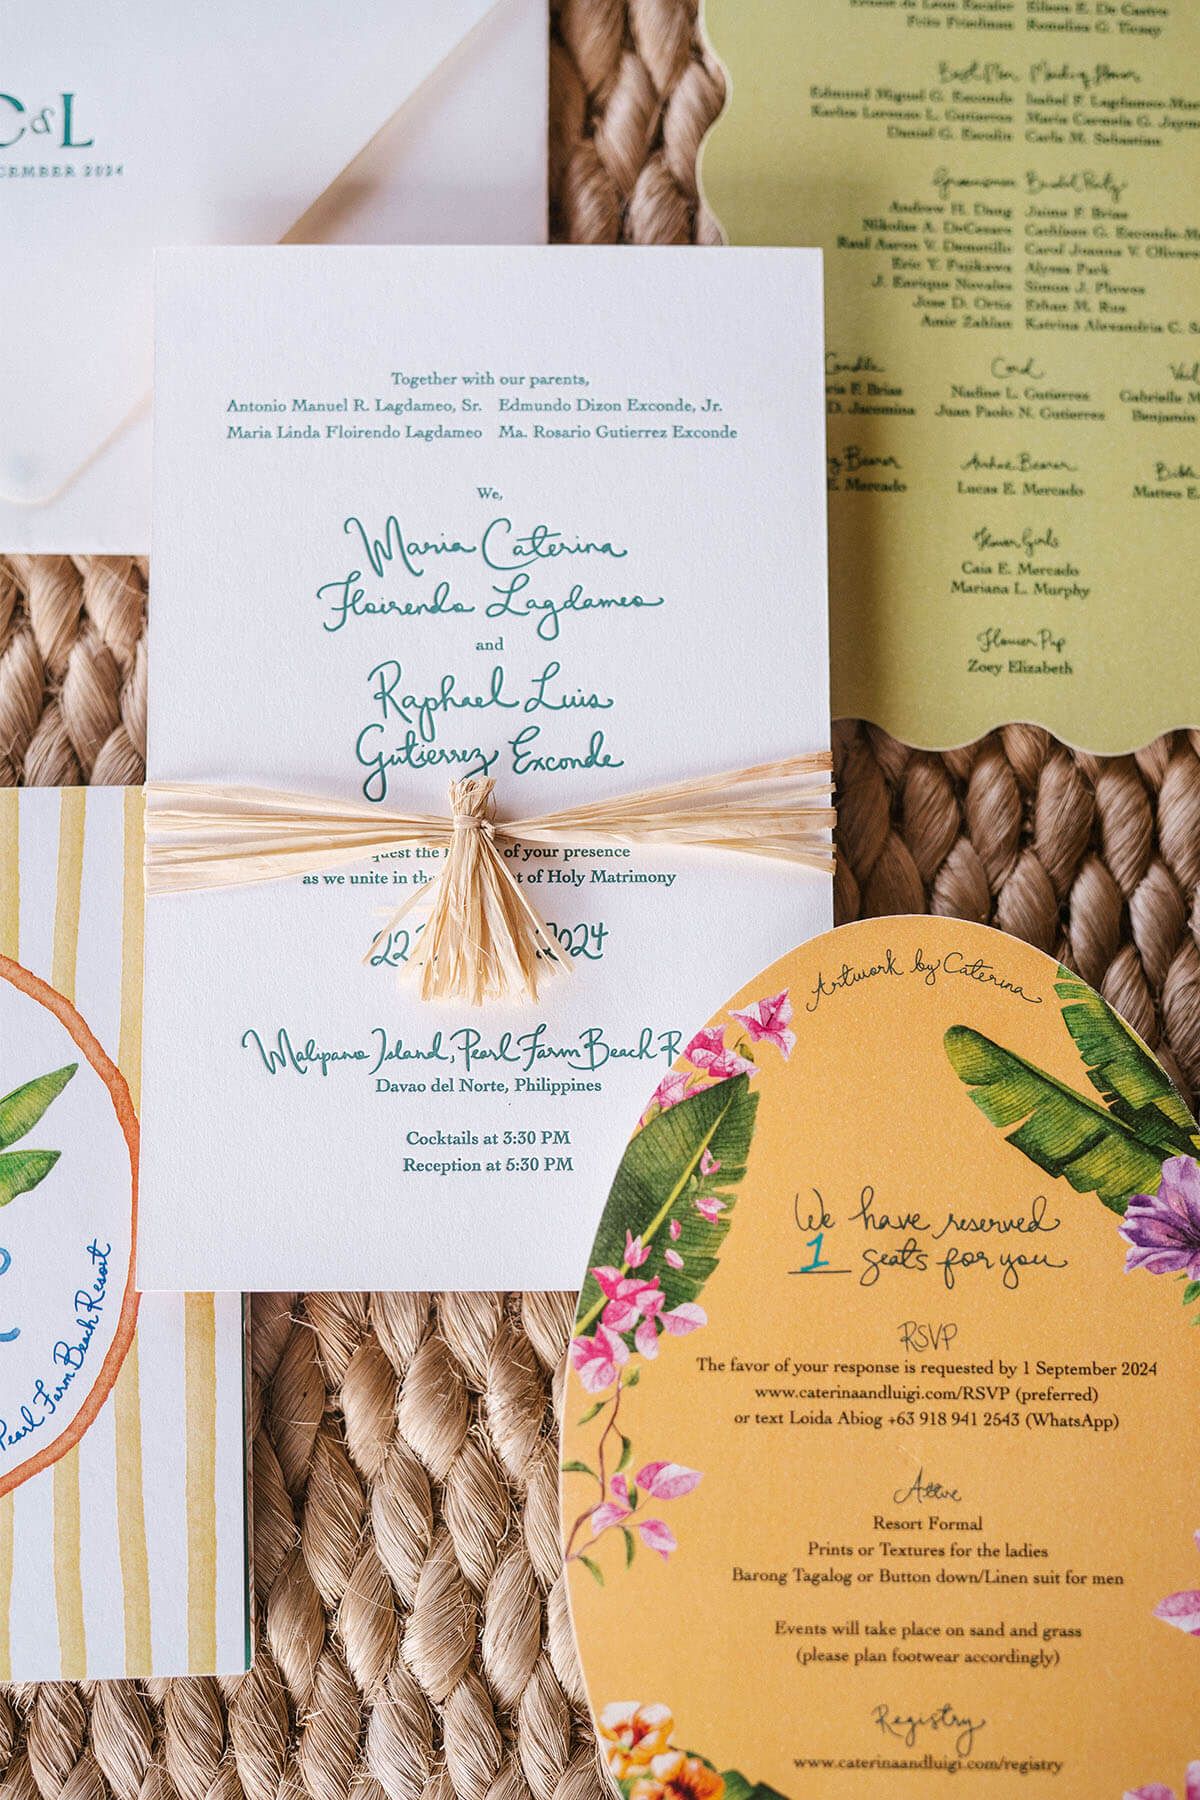 C&L
CEMBER 2024
Fritz Friedman Romelina G. Tiegsy
Best Men Maids of Honor
Edmund Miguel G. Exconde Isabel F. Lagdameo-Mu
Karlos Lorenzo L. Gutierrez Maria Carmela G. Jayme
Daniel G. Escolin Carla M. Sebastian
Groomsmen Bridal Party
Andrew H. Dang Jaime F. Brias
Nikolas A. DeCesare Cathleen G. Exconde-M
Raul Aaron V. Demetillo Carol Joanna V. Olivare
Eric Y. Fujikawa Alyssa Park
J. Enrique Novales Simon J. Plowes
Jose D. Ortiz Ethan M. Rua
Amir Zahlan Katrina Alexandria C. S
Candle Cord Veil
ria F. Brias Nadine L. Gutierrez Gabrielle M
D. Jacomina Juan Paolo N. Gutierrez Benjamin
g Bearer Arrhae Bearer Bible
E. Mercado Lucas E. Mercado Matteo E.
Flower Girls
Caia E. Mercado
Mariana L. Murphy
Flower Pup
Zoey Elizabeth
Together with our parents,
Antonio Manuel R. Lagdameo, Sr. Edmundo Dizon Exconde, Jr.
Maria Linda Floirendo Lagdameo Ma. Rosario Gutierrez Exconde
We,
Maria Caterina
Floirendo Lagdameo
and
Raphael Luis
Gutierrez Exconde
quest the of your presence
as we unite in th t of Holy Matrimony
22 2024
Malipano Island, Pearl Farm Beach R
Davao del Norte, Philippines
Cocktails at 3:30 PM
Reception at 5:30 PM
Pearl Farm Beach Resort
Artwork by Caterina
We have reserved
1 seats for you
RSVP
The favor of your response is requested by 1 September 2024
www.caterinaandluigi.com/RSVP (preferred)
or text Loida Abiog +63 918 941 2543 (WhatsApp)
Attire
Resort Formal
Prints or Textures for the ladies
Barong Tagalog or Button down/Linen suit for men
Events will take place on sand and grass
(please plan footwear accordingly)
Registry
www.caterinaandluigi.com/registry